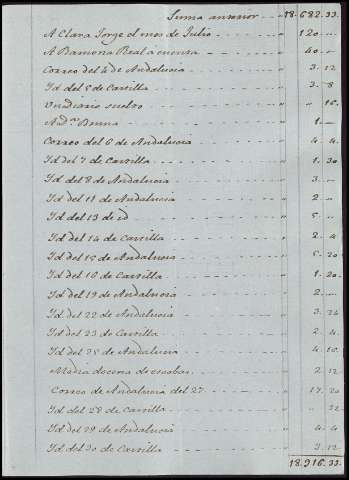 Suma anterior - - - " 18.682.33.
A Clara Jorge el mes de Julio - - - " 120 - "
A Ramona Real a cuenta - - - " 40 - "
Correo del 4 de Andalucia - - - " 3 - 12
Yd del 5 de Castilla - - - " 3 - 8
Un diario suelto - - - " " 16.
- - - " 1. —
Correo del 6 de Andalucia - - - " 4 - 4
Yd del 7 de Castilla - - - " 1. 30
Yd del 8 de Andalucia - - - " 3. —
Yd del 11 de Andalucia - - - " 2 - "
Yd del 13 de id - - - " 5 - "
Yd del 14 de Castilla - - - " 2. 4
Yd del 15 de Andalucia - - - " 5. 20
Yd del 16 de Castilla - - - " 1. 20.
Yd del 19 de Andalucia - - - " 2. —
Yd del 22 de Andalucia - - - " 3. 24
Yd del 23 de Castilla - - - " 2. 4
Yd del 25 de Andalucia - - - " 4. 16.
Media docena de escobas - - - " 2. 12
Correo de Andalucia del 27 - - - " 17. 20
Yd del 28 de Castilla - - - " " 32
Yd del 29 de Andalucia - - - " 4 - 4
Yd del 30 de Castilla - - - " 3. 12
18.916.33.